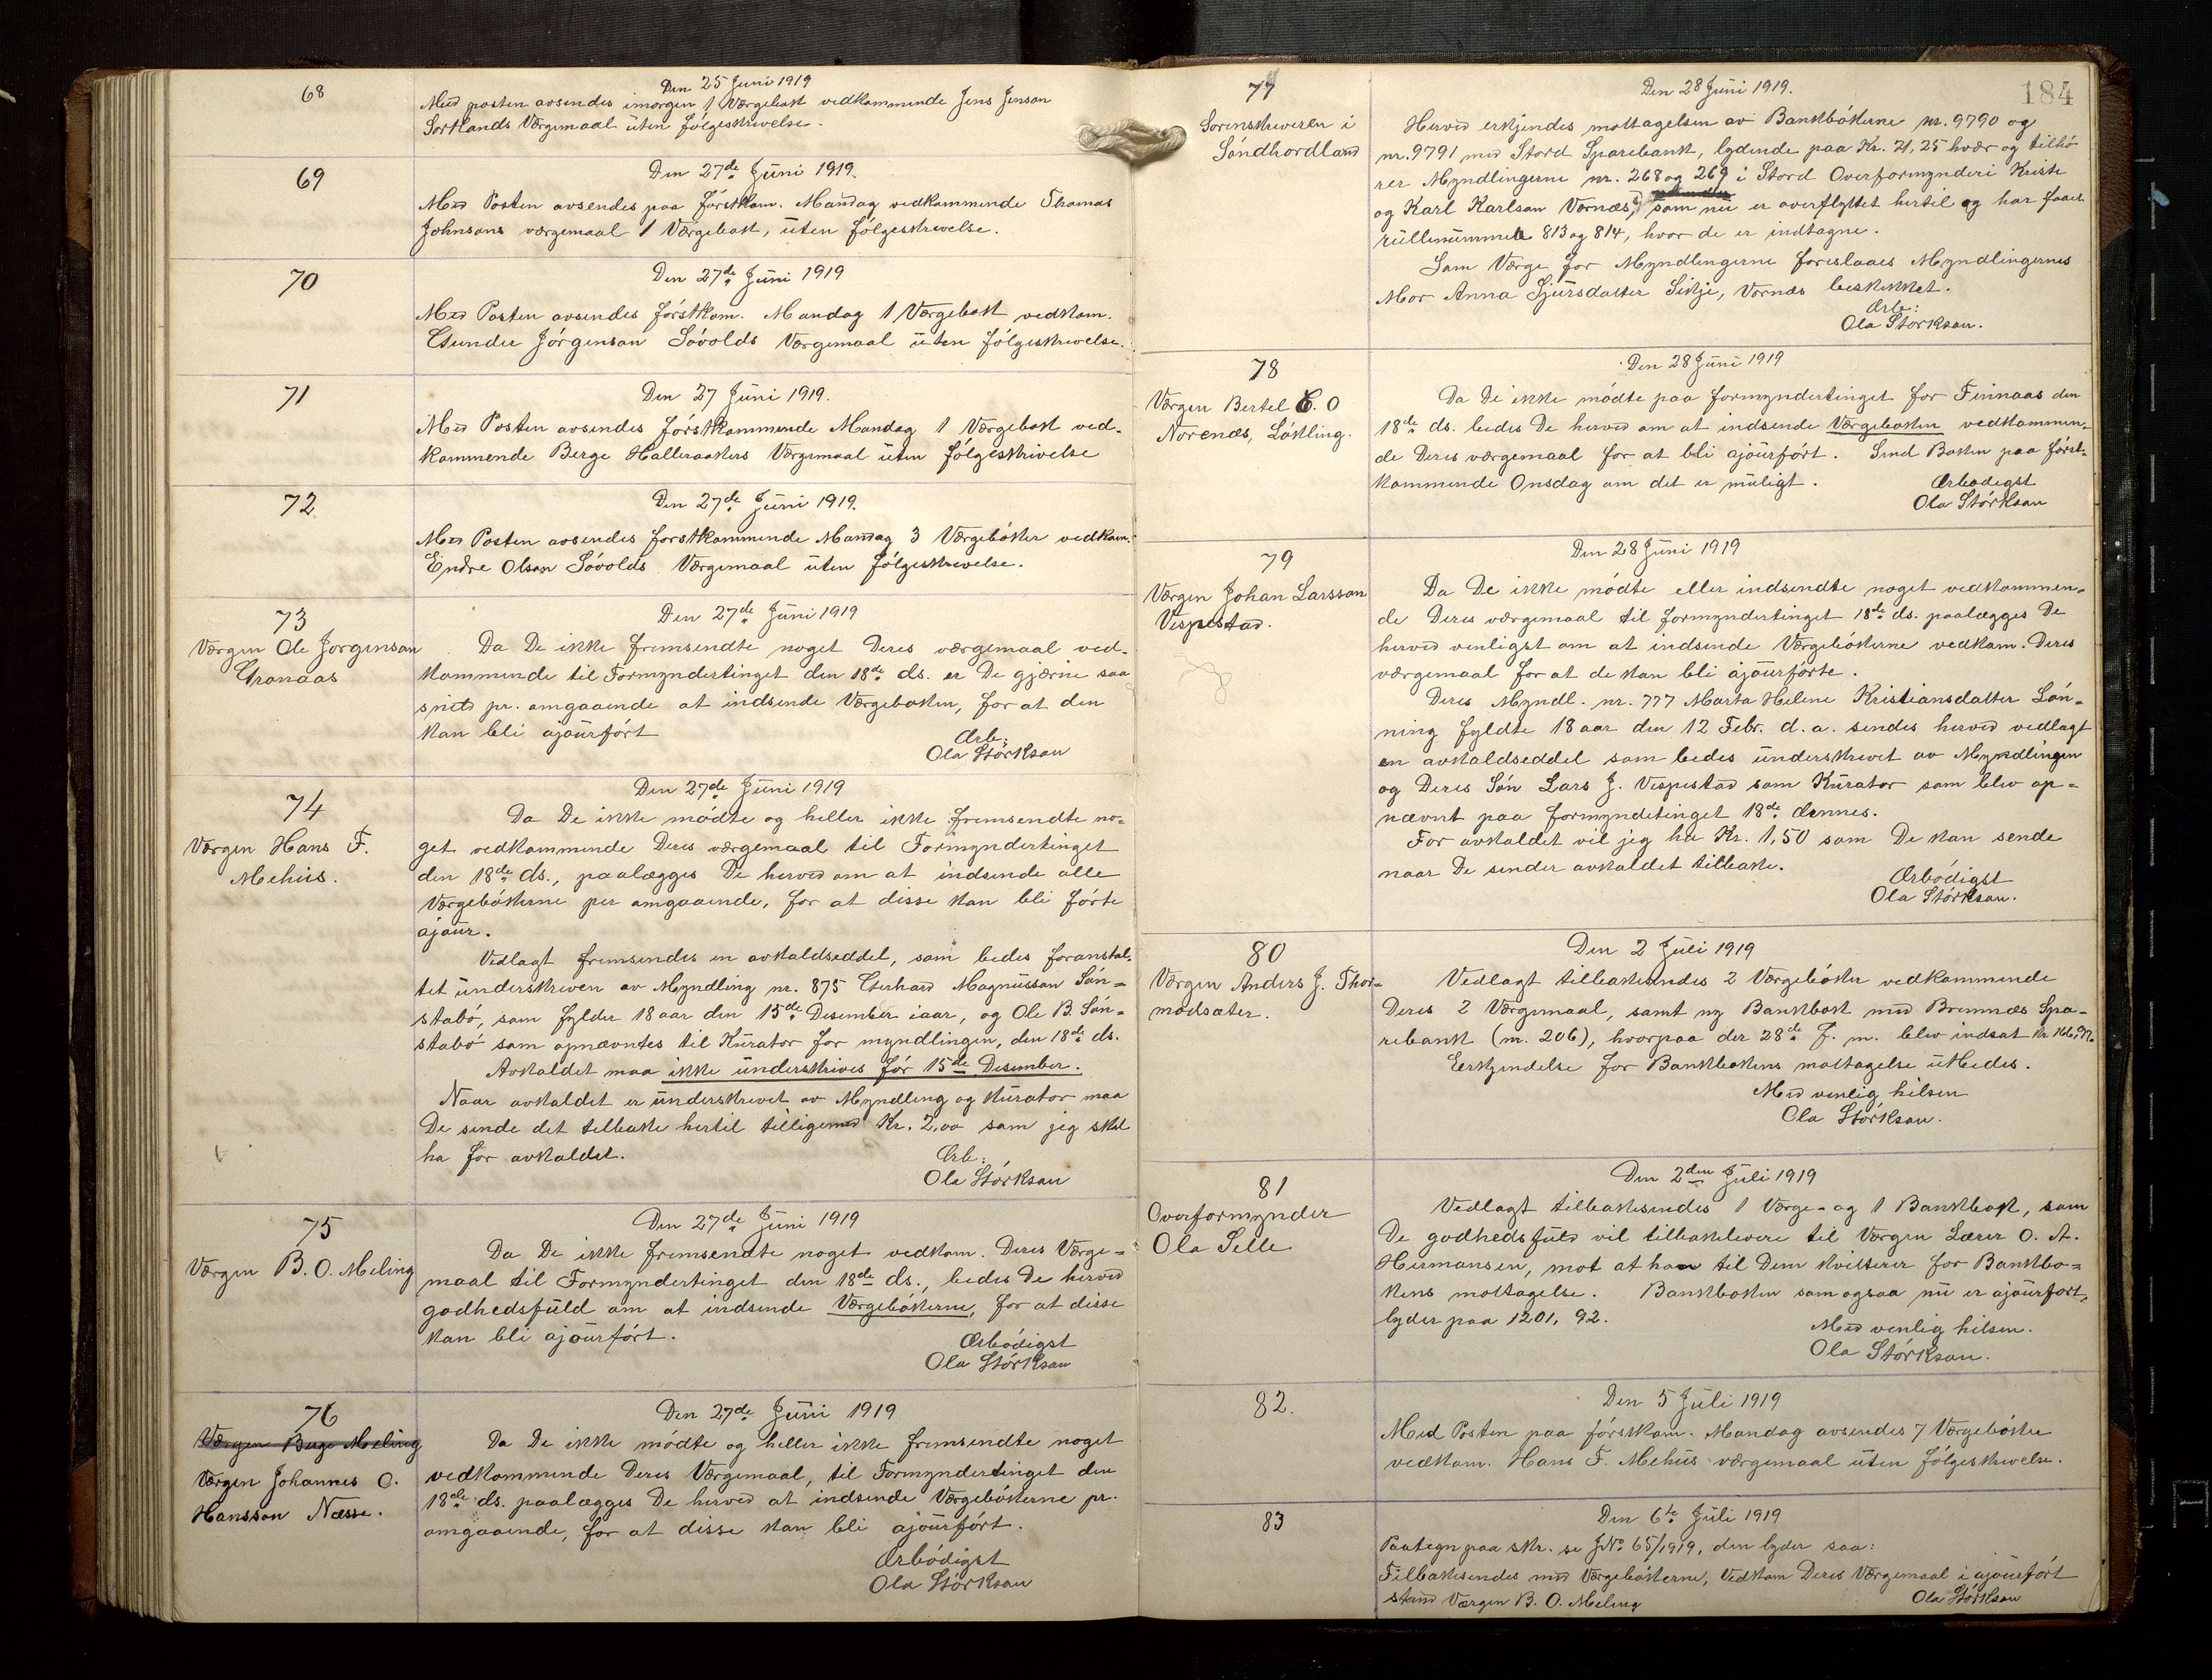 68
Den 25 Juni 1919
Med posten avsendes imorgen 1 Værgebok vedkommende Jens Jenson
Sortlands Værgemaal uten følgeskrivelse.
69
Den 27de Juni 1919.
Med Posten avsendes paa førstkom. Mandag vedkommende Thomas
Johnsons værgemaal 1 Værgebok, uten følgeskrivelse.
70
Den 27de Juni 1919
Med Posten avsendes førstkom. Mandag 1 Værgebok vedkom.
Gunder Jørgenson Søvolds Værgemaal uten følgeskrivelse.
71
Den 27 Juni 1919.
Med Posten avsendes førstkommende Mandag 1 Værgebok ved-
kommende Berge Halleraakers Værgemaal uten følgeskrivelse
72
Den 27de Juni 1919.
Med Posten avsendes førstkommende Mandag 3 Værgebøker vedkom.
Endre Olson Søvolds Værgemaal uten følgeskrivelse.
73
Værgen Ole Jørgenson
Granaas
Den 27de Juni 1919
Da De ikke fremsendte noget Deres værgemaal ved-
kommende til Formyndertinget den 18de ds. er De gjærne saa
snild pr. omgaaende at indsende Værgeboken, for at den
kan bli ajourført
Ærb:
Ola Størkson
74
Værgen Hans F.
Mehus.
Den 27de Juni 1919
Da De ikke mødte og heller ikke fremsendte no-
get vedkommende Deres værgemaal til Formyndertinget
den 18de ds., paalægges De herved om at indsende alle
Værgebøkerne per omgaaende, for at disse kan bli førte
ajour.
Vedlagt fremsendes en avkaldseddel, som bedes foranstal-
tet underskreven av Myndling nr. 875 Gerhard Magnusson Søn-
stabø, som fylder 18 aar den 15de Desember iaar, og Ole B. Søn-
stabø som opnævntes til Kurator for myndlingen, den 18de ds.
Avkaldet maa ikke underskrives før 15de Desember.
Naar avkaldet er underskrevet av Myndling og Kurator maa
De sende det tilbake hertil tilligemed Kr. 2,00 som jeg skal
ha for avkaldet.
Ærb:
Ola Størkson
75
Værgen B. O. Meling
Den 27de Juni 1919
Da De ikke fremsendte noget vedkom. Deres Værge-
maal til Formyndertinget den 18de ds., bedes De herved
godhedsfuld om at indsende Værgebøkerne, for at disse
kan bli ajourført.
Ærbødigst
Ola Størkson
76
Værgen Berge Meling
Værgen Johannes O.
Hansson Næsse.
Den 27de Juni 1919
Da De ikke mødte og heller ikke fremsendte noget
vedkommende Deres Værgemaal, til Formyndertinget den
18de ds. paalægges De herved at indsende Værgebøkerne pr.
omgaaende, for at disse kan bli ajourført.
Ærbødigst
Ola Størkson
184
77
Sorenskriveren i
Søndhordland
Den 28 Juni 1919.
Herved erkjendes mottagelsen av Bankbøkerne nr. 9790 og
nr. 9791 med Stord Sparebank, lydende paa Kr. 71,25 hver og tilhø
rer Myndlingerne nr. 268 og 269 i Stord Overformynderi Kriste
og Karl Karlson Vornæs, som nu er overflyttet hertil og har faaet
rullenummer 813 og 814, hvor de er indtagne.
Som Værge for Myndlingerne foreslaaes Myndlingernes
Mor Anna Sjursdatter Sikje, Vornæs beskikket.
Ærb:
Ola Størkson.
78
Værgen Bertel C. O
Norenæs, Løkling.
Den 28 Juni 1919
Da De ikke mødte paa formyndertinget for Finnaas den
18de ds. bedes De herved om at indsende Værgeboken vedkommen-
de Deres værgemaal for at bli ajourført. Send Boken paa først-
kommende Onsdag om det er muligt.
Ærbødigst
Ola Størkson
79
Værgen Johan Larsson
Vespestad.
Den 28 Juni 1919
Da De ikke mødte eller indsendte noget vedkommen-
de Deres værgemaal til formyndertinget 18de ds. paalægges De
herved venligst om at indsende Værgebøkerne vedkom. Deres
værgemaal for at de kan bli ajourførte.
Deres Myndl. nr. 777 Marta Helene Kristiansdatter Løn-
ning fyldte 18 aar den 12 Febr. d. a. sendes herved vedlagt
en avkaldseddel som bedes underskrevet av Myndlingen
og Deres Søn Lars J. Vespestad som Kurator som blev op-
nævnt paa formyndetinget 18de dennes.
For avkaldet vil jeg ha Kr. 1,50 som De kan sende
naar De sender avkaldet tilbake.
Ærbødigst
Ola Størkson.
80
Værgen Anders J. Thor-
modsæter.
Den 2 Juli 1919
Vedlagt tilbakesendes 2 Værgebøker vedkommende
Deres 2 Værgemaal, samt ny Bankbok med Bremnæs Spa-
rebank (nr. 206), hvorpaa der 28de f. m. blev indsat
Erkjendelse for Bankbokens mottagelse utbedes.
Med venlig hilsen
Ola Størkson.
81
Overformynder
Ola Selle
Den 2den Juli 1919
Vedlagt tilbakesendes 1 Værge- og 1 Bankbok, som
De godhedsfuld vil tilbakelevere til Værgen Lærer O. A.
Hermansen, mot at han til Dem kvitterer for Bankbo-
kens mottagelse. Bankboken som ogsaa nu er ajourført,
lyder paa 1201,92.
Med venlig hilsen.
Ola Størkson.
82.
Den 5 Juli 1919
Med Posten paa førstkom. Mandag avsendes 7 Værgebøker
vedkom. Hans F. Mehus værgemaal uten følgeskrivelse.
83
Den 6te Juli 1919
Paategn paa skr. se JNo 65/1919, den lyder saa:
Tilbakesendes med Værgebøkerne, Vedkom Deres Værgemaal i ajourført
stand Værgen B. O. Meling
Ola Størkson